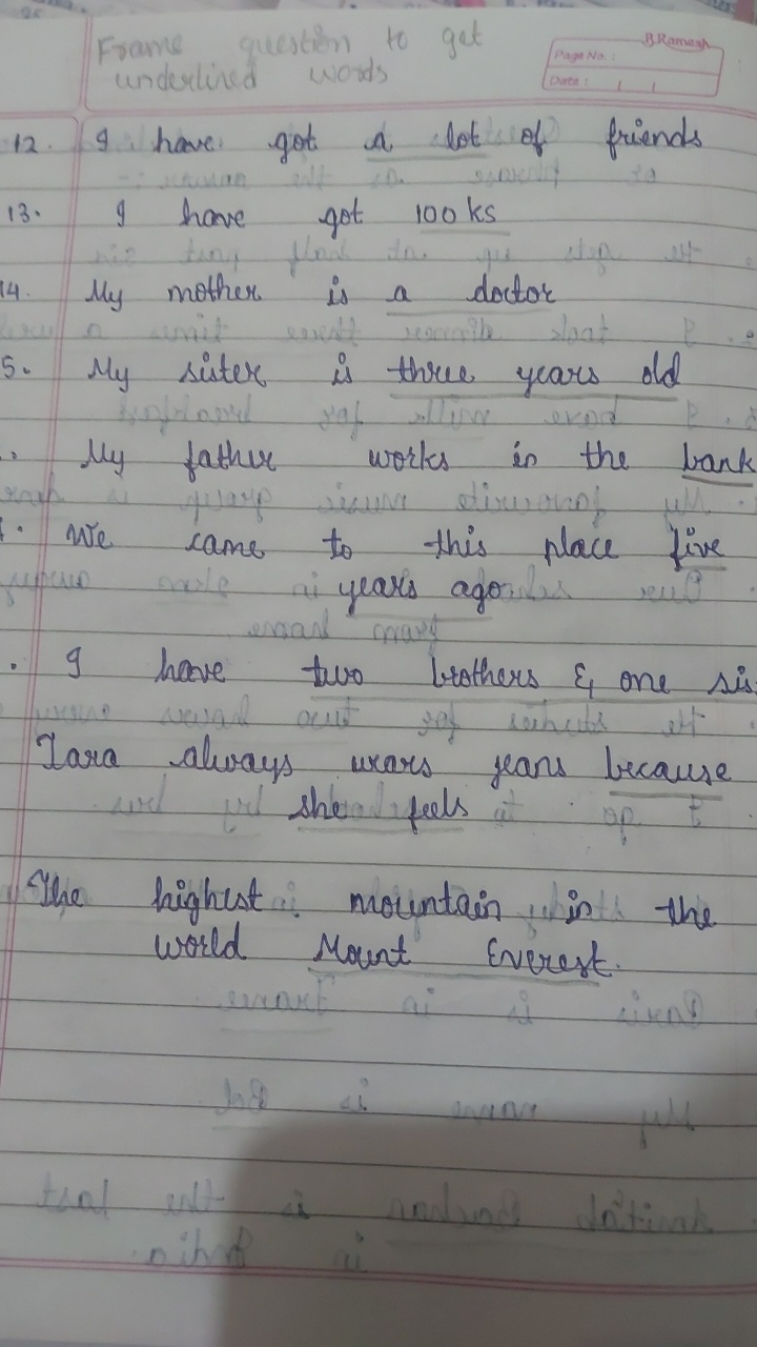 Frame question to get
underlined words
B.Ramesh
Page No.:
Date:
12. I have got a lot of friends
13. I have got 100 ks
14. My mother is a doctor
5. My sister is three years old
My father works in the bank
We came to this place five
years ago
I have two brothers & one sis
Tara always wears jeans because
she feels
The highest mountain in the
world Mount Everest.